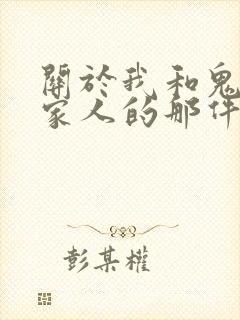 關於我和鬼
家人的那件
彭某權